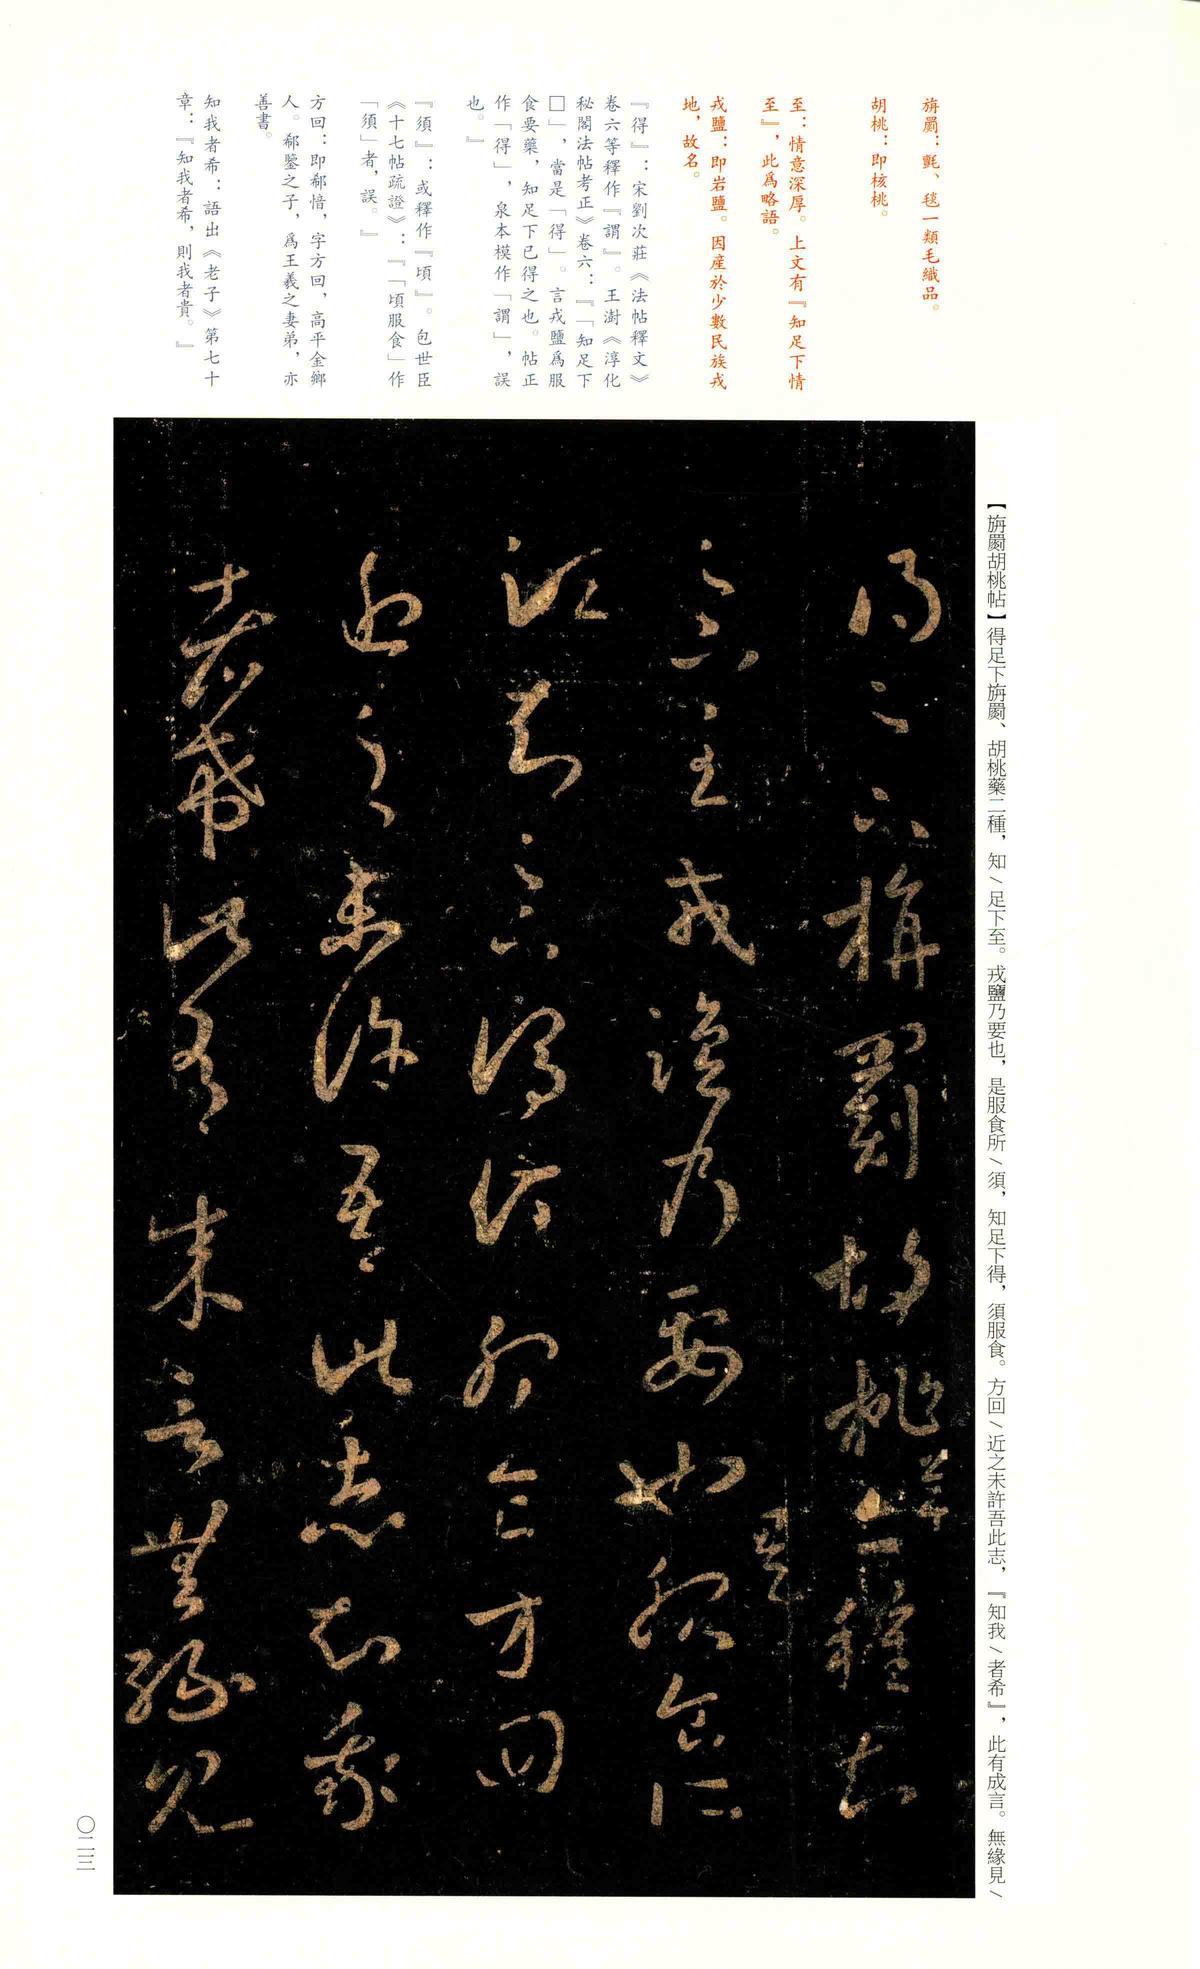 旃罽：氈、毯一類毛織品。
胡桃：即核桃。
至：情意深厚。上文有『知足下情
至』，此爲略語。
戎鹽：即岩鹽。因産於少數民族戎
地，故名。
『得』：宋劉次莊《法帖釋文》
卷六等釋作『謂』。王澍《淳化
秘閣法帖考正》卷六：『「知足下
□」，當是「得」。言戎鹽爲服
食要藥，知足下已得之也。帖正
作「得」，泉本模作「謂」，誤
也。』
『須』：或釋作『頃』。包世臣
《十七帖疏證》：『「頃服食」作
「須」者，誤。』
方回：即郗愔，字方回，高平金鄉
人。郗鑒之子，爲王羲之妻弟，亦
善書。
知我者希：語出《老子》第七十
章：『知我者希，則我者貴。』
【旃罽胡桃帖】得足下旃罽、胡桃藥二種，知\足下至。戎鹽乃要也，是服食所\須，知足下得，須服食。方回\近之未許吾此志，『知我\者希』，此有成言。無緣見\
得足下旃罽胡桃藥二種知
足下至戎鹽乃要也是服食所
須知足下得須服食方回
近之未許吾此志知我
者希此有成言無緣見
〇二三